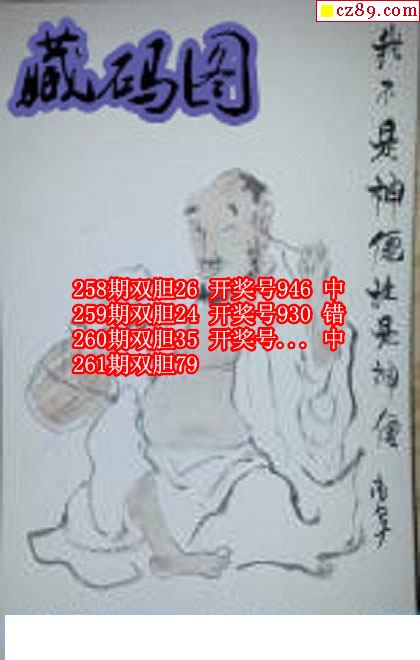 cz89.com
藏码图
258期双胆26 开奖号946 中
259期双胆24 开奖号930 错
260期双胆35 开奖号... 中
261期双胆79
我不是神僊社是神僊